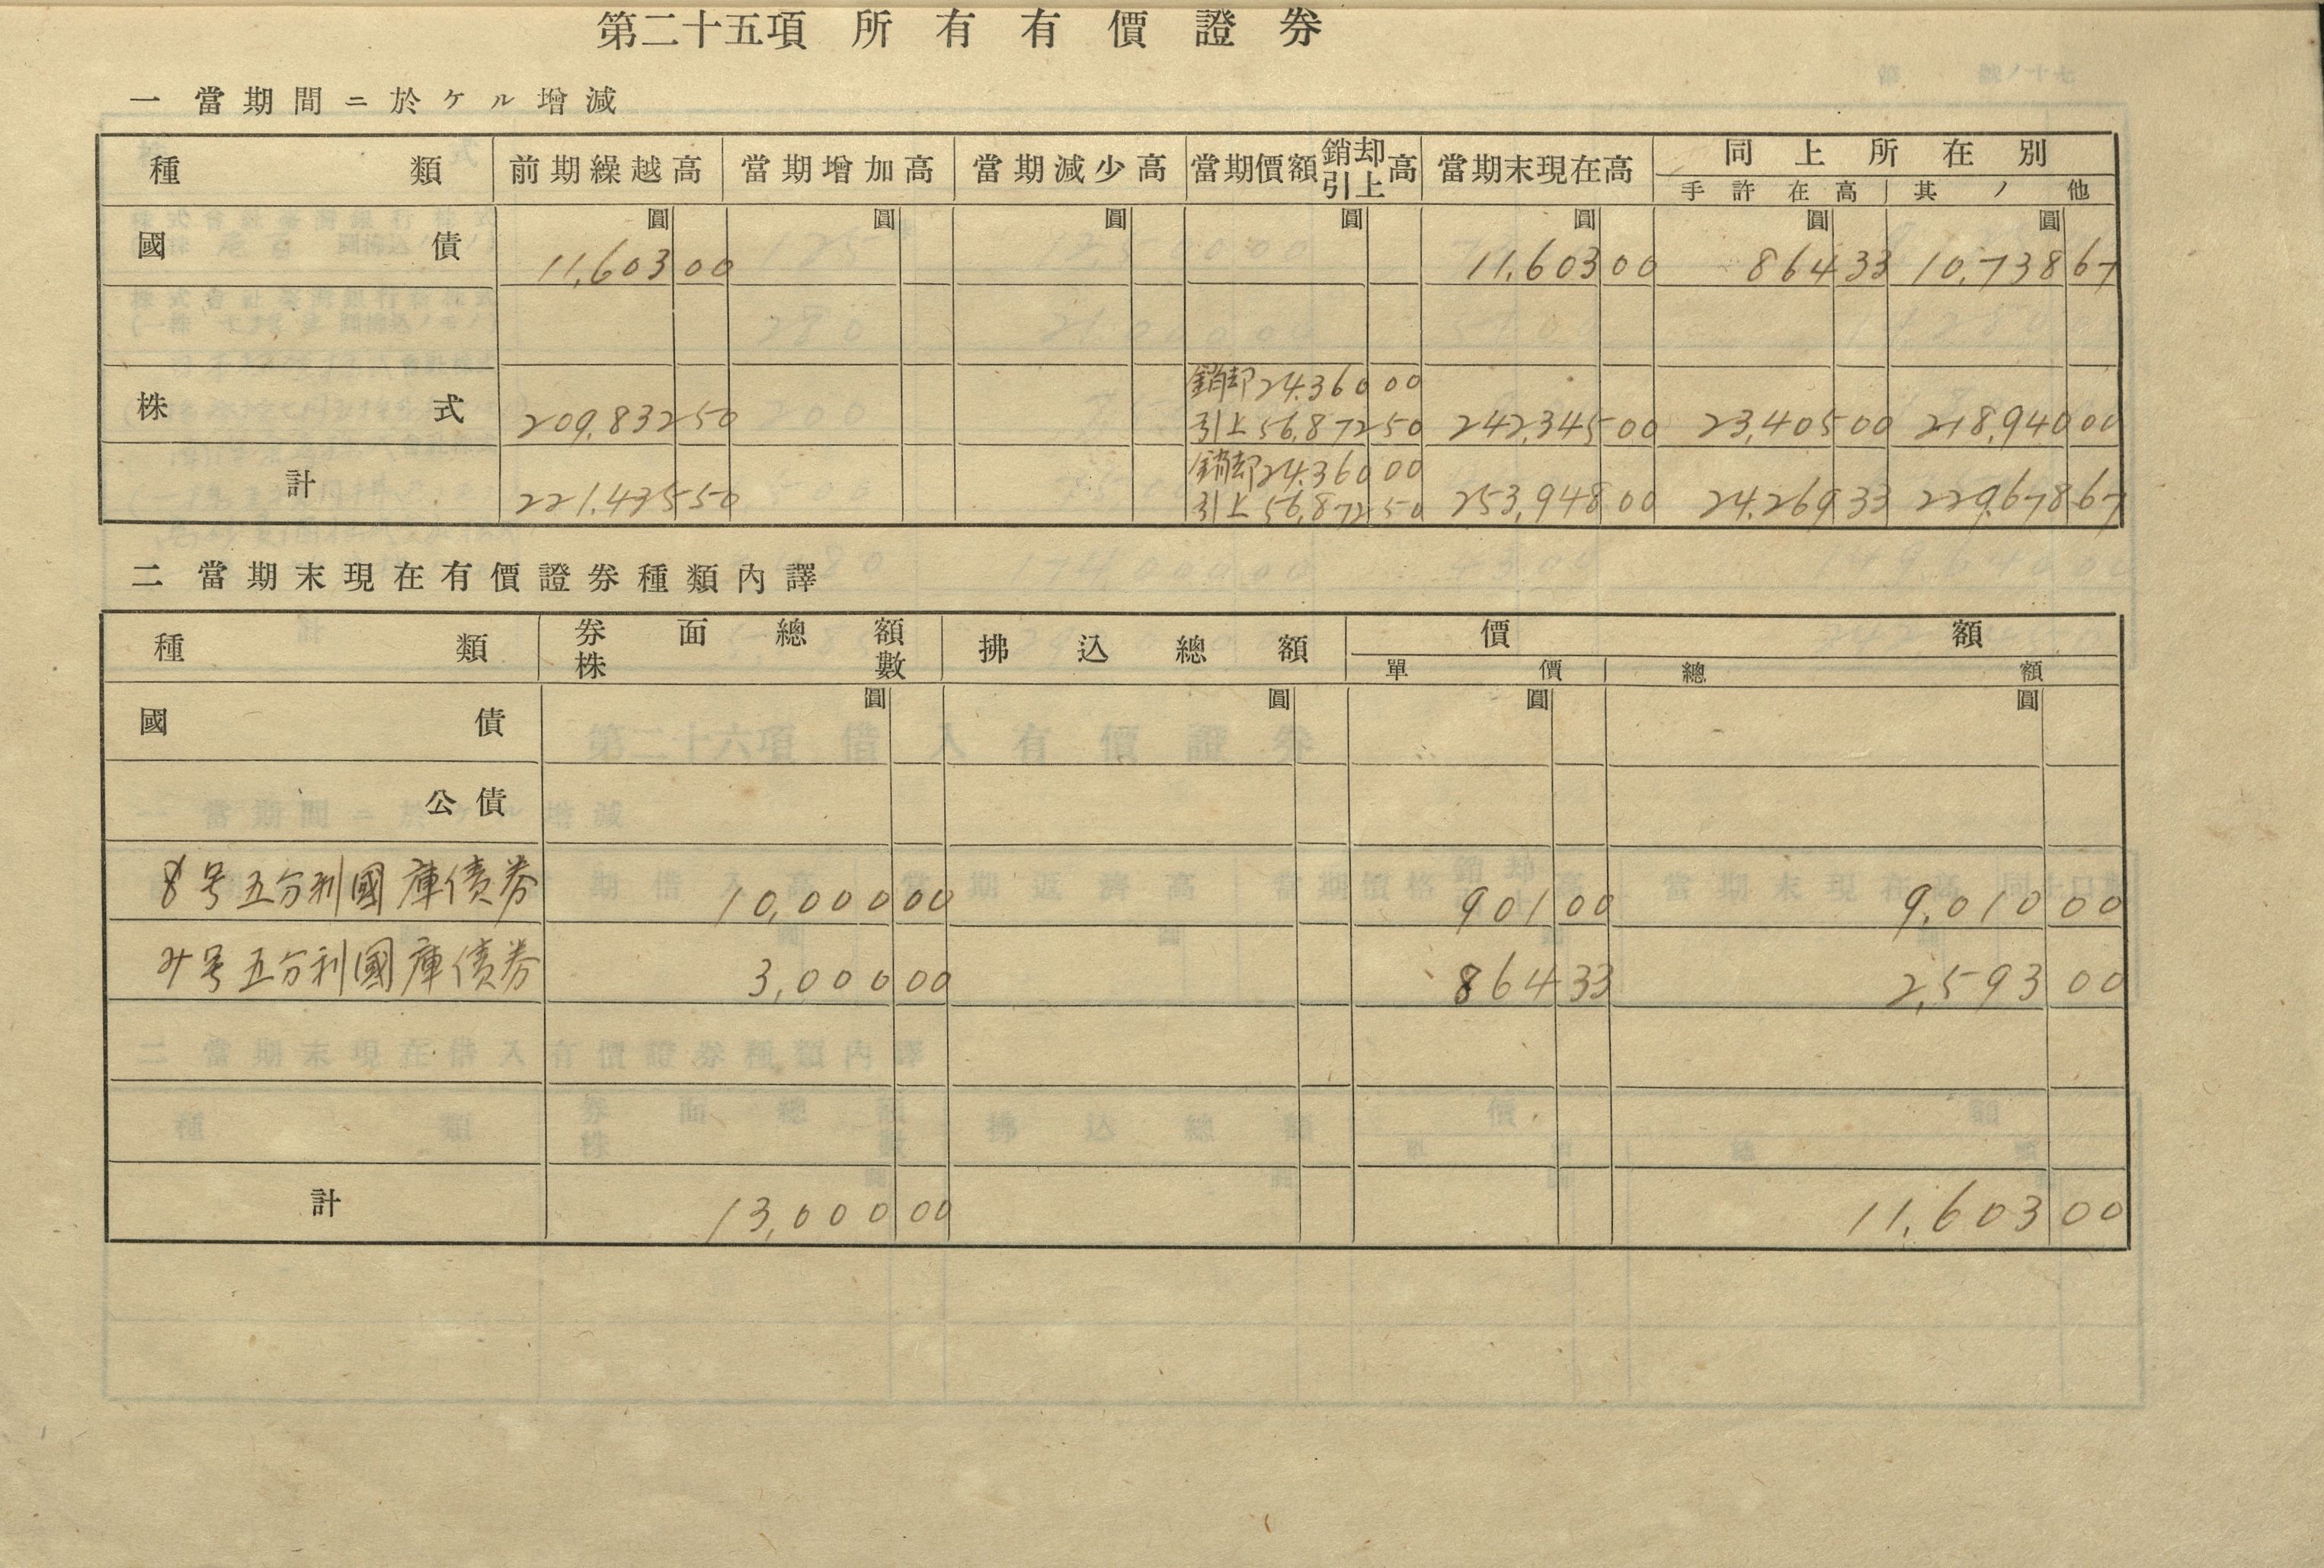 第二十五項 所有有價證券
一 當期間ニ於ケル增減
種類 前期繰越高 當期增加高 當期減少高 當期價額銷却引上高 當期末現在高 同上所在別
手許在高 其ノ他
圓 圓 圓 圓 圓 圓 圓
國債 11,603 00 11,603 00 864 33 10,738 67
銷却 24,360 00
株式 209,832 50 引上 56,872 50 242,345 00 23,405 00 218,940 00
銷却 24,360 00
計 221,435 50 引上 56,872 50 253,948 00 24,269 33 229,678 67
二 當期末現在有價證券種類內譯
種類 券面總額 株數 拂込總額 價額
單價 總額
圓 圓 圓 圓
國債
公債
号五分利國庫債券 10,000 00 901 00 9,010 00
号五分利國庫債券 3,000 00 864 33 2,593 00
計 13,000 00 11,603 00